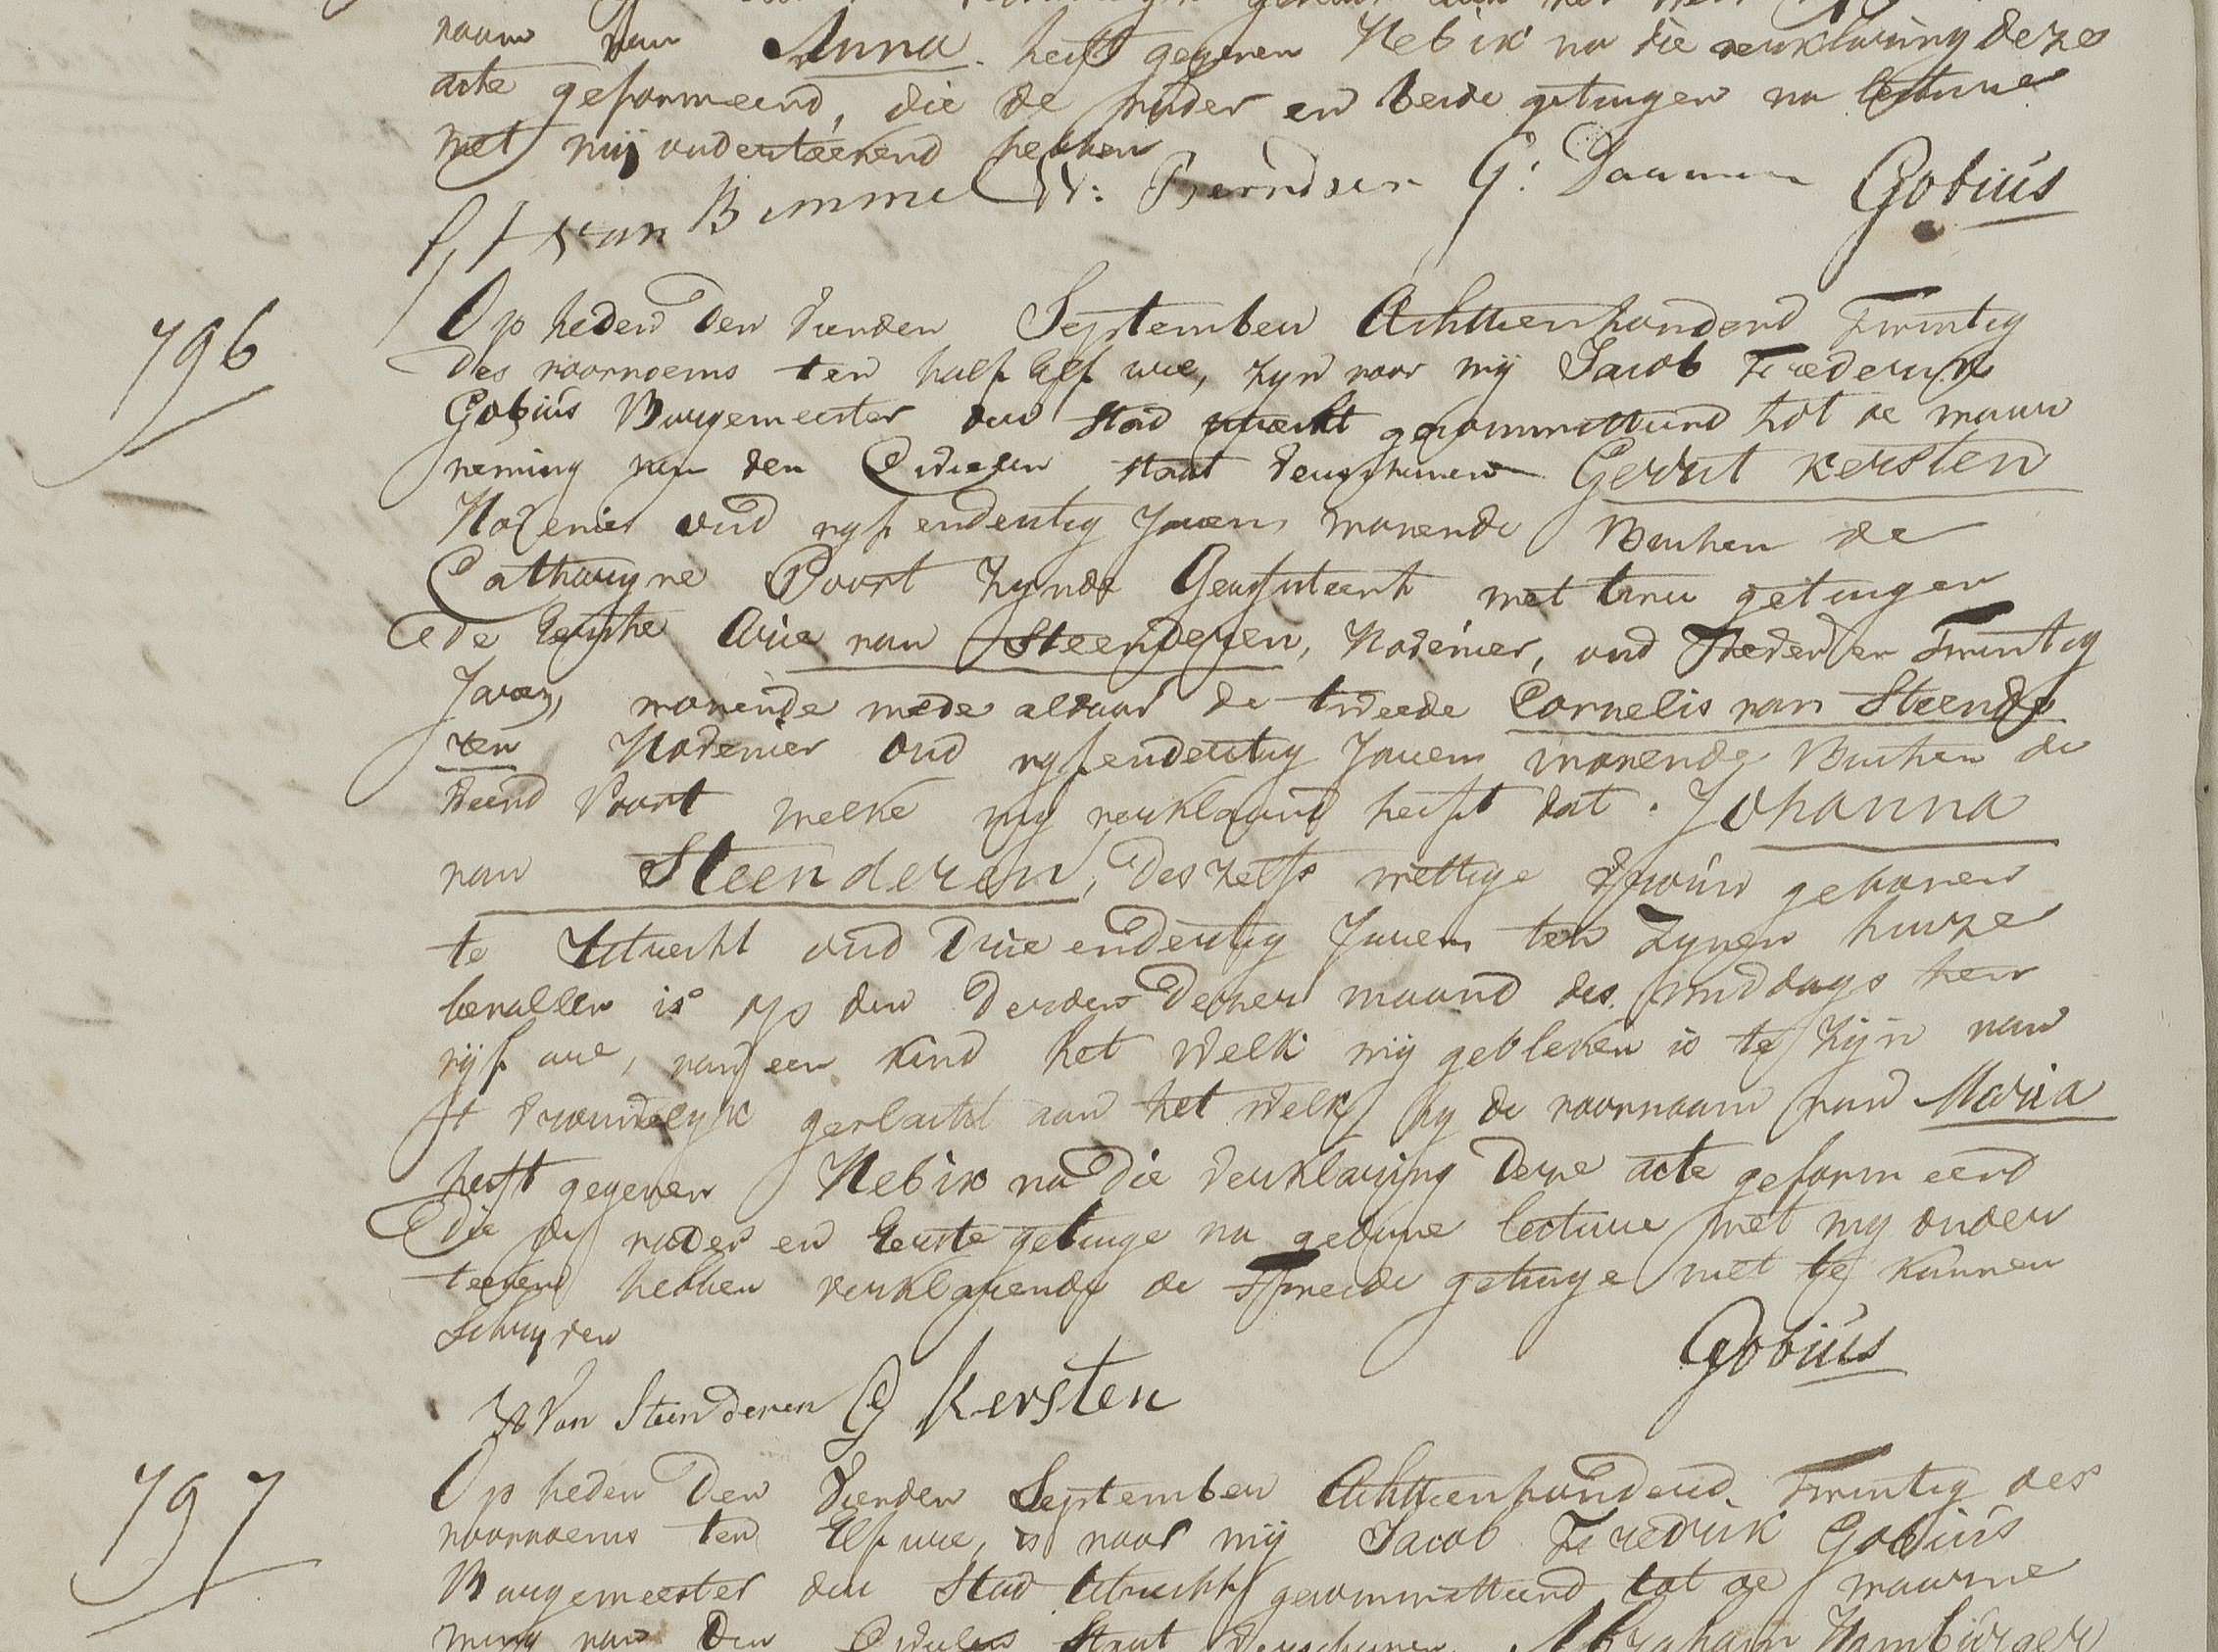 naam van Anna heeft gegeven Heb ik na die verklaring deze
acte geformeerd, die de vader en beide getuigen na lecture
met mij onderteekend hebben
van Bemmel W: Berndsen G: Daamen Gobius
796
Op heden den vierden September Achttienhonderd Twintig
des voornoens ten half Elf ure, zyn voor mij Jacob Frederik
Gobius Burgemeester der Stad Utrecht gecommitteerd tot de waar
neming van den Civielen staat verschenen Gerrit Kersten
Hovenier oud vyf endertig Jaren wonende Buiten de
Catharyne Poort zynde Geassisteert met twee getuigen
de Eerste Arie van Steenderen, Hovenier, oud en Twintig
Jaren, wonende mede aldaar de tweede Cornelis van Steende
ren Hovenier oud vyfendertig Jaren wonende Buiten de
Weerd Poort welke my verklaard heeft dat Johanna
van Steenderen, deszelfs wettige vrouw geboren
te Utrecht oud Drie endertig Jaren ten zynen huize
bevallen is op den Derden dezer maand des middags ten
vijf ure, van een kind het welk mij gebleken is te zijn van
't vrouwelyk geslacht aan het welk hy de voornaam van Maria
heeft gegeven Heb ik na die verklaring deze acte geformeerd
die de vader en Eerste getuige na gedane lecture met my onder
teekend hebben verklarende de Tweede getuige niet te kunnen
Schryven
Gobius
A Van Steenderen G Kersten
797
Op heden den vierden September Achttienhonderd Twintig des
voornoens ten Elf ure, is voor mij Jacob Fredrik Gobius
Burgemeester der Stad Utrecht gecommitteerd tot de waarne
ming van den Civielen Staat verschenen Abraham Hamburger